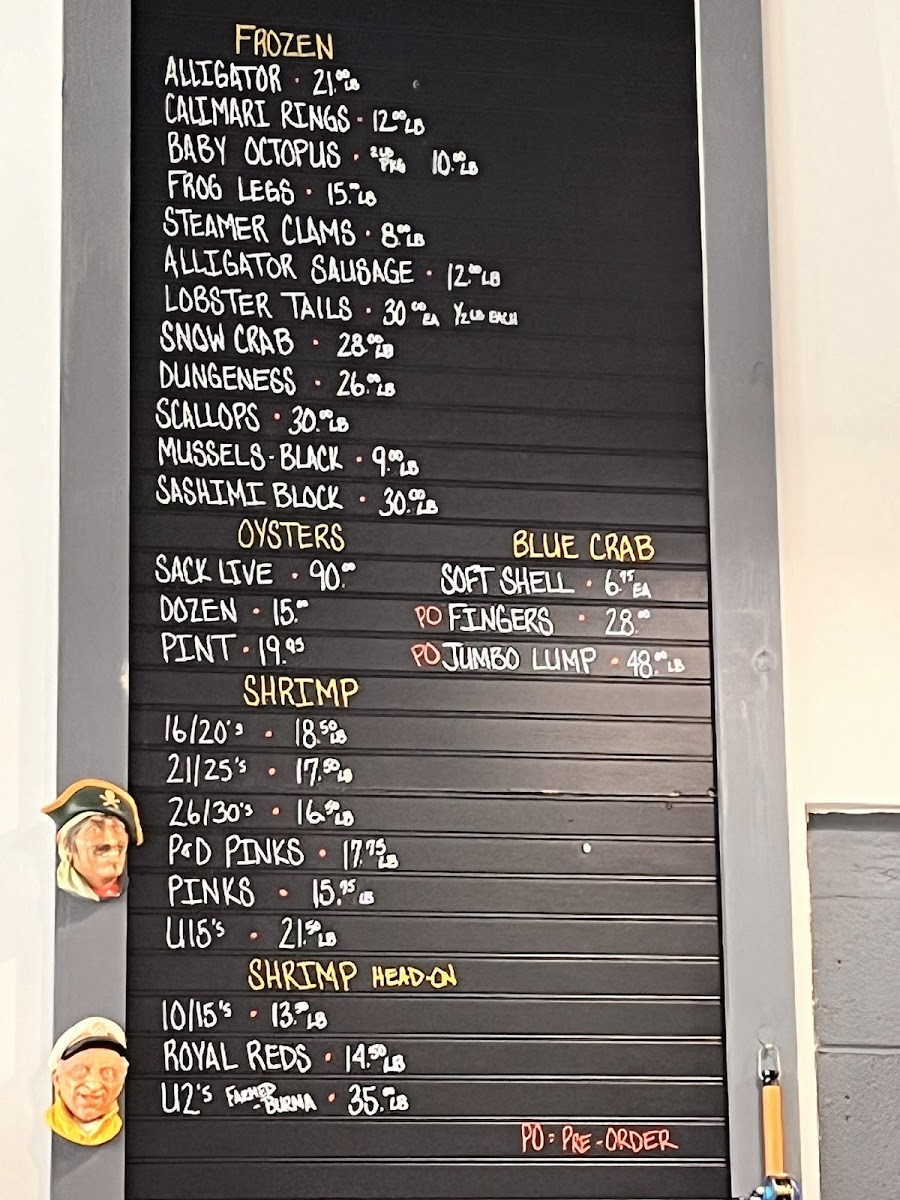 FROZEN
ALLIGATOR • 21.00 LB
CALIMARI RINGS • 12.00 LB
BABY OCTOPUS • 2 LB PKG 10.00 LB
FROG LEGS • 15.00 LB
STEAMER CLAMS • 8.00 LB
ALLIGATOR SAUSAGE • 12.00 LB
LOBSTER TAILS • 30.00 EA 1/2 LB EACH
SNOW CRAB • 28.00 LB
DUNGENESS • 26.00 LB
SCALLOPS • 30.00 LB
MUSSELS - BLACK • 9.00 LB
SASHIMI BLOCK • 30.00 LB
OYSTERS
SACK LIVE • 90.00
DOZEN • 15.00
PINT • 19.95
BLUE CRAB
SOFT SHELL • 6.95 EA
PO FINGERS • 28.00
PO JUMBO LUMP • 48.00 LB
SHRIMP
16/20's • 18.50 LB
21/25's • 17.50 LB
26/30's • 16.50 LB
P&D PINKS • 17.75 LB
PINKS • 15.75 LB
U15's • 21.50 LB
SHRIMP HEAD-ON
10/15's • 13.50 LB
ROYAL REDS • 14.50 LB
U2's FARMED - BURMA • 35.00 LB
PO = PRE-ORDER